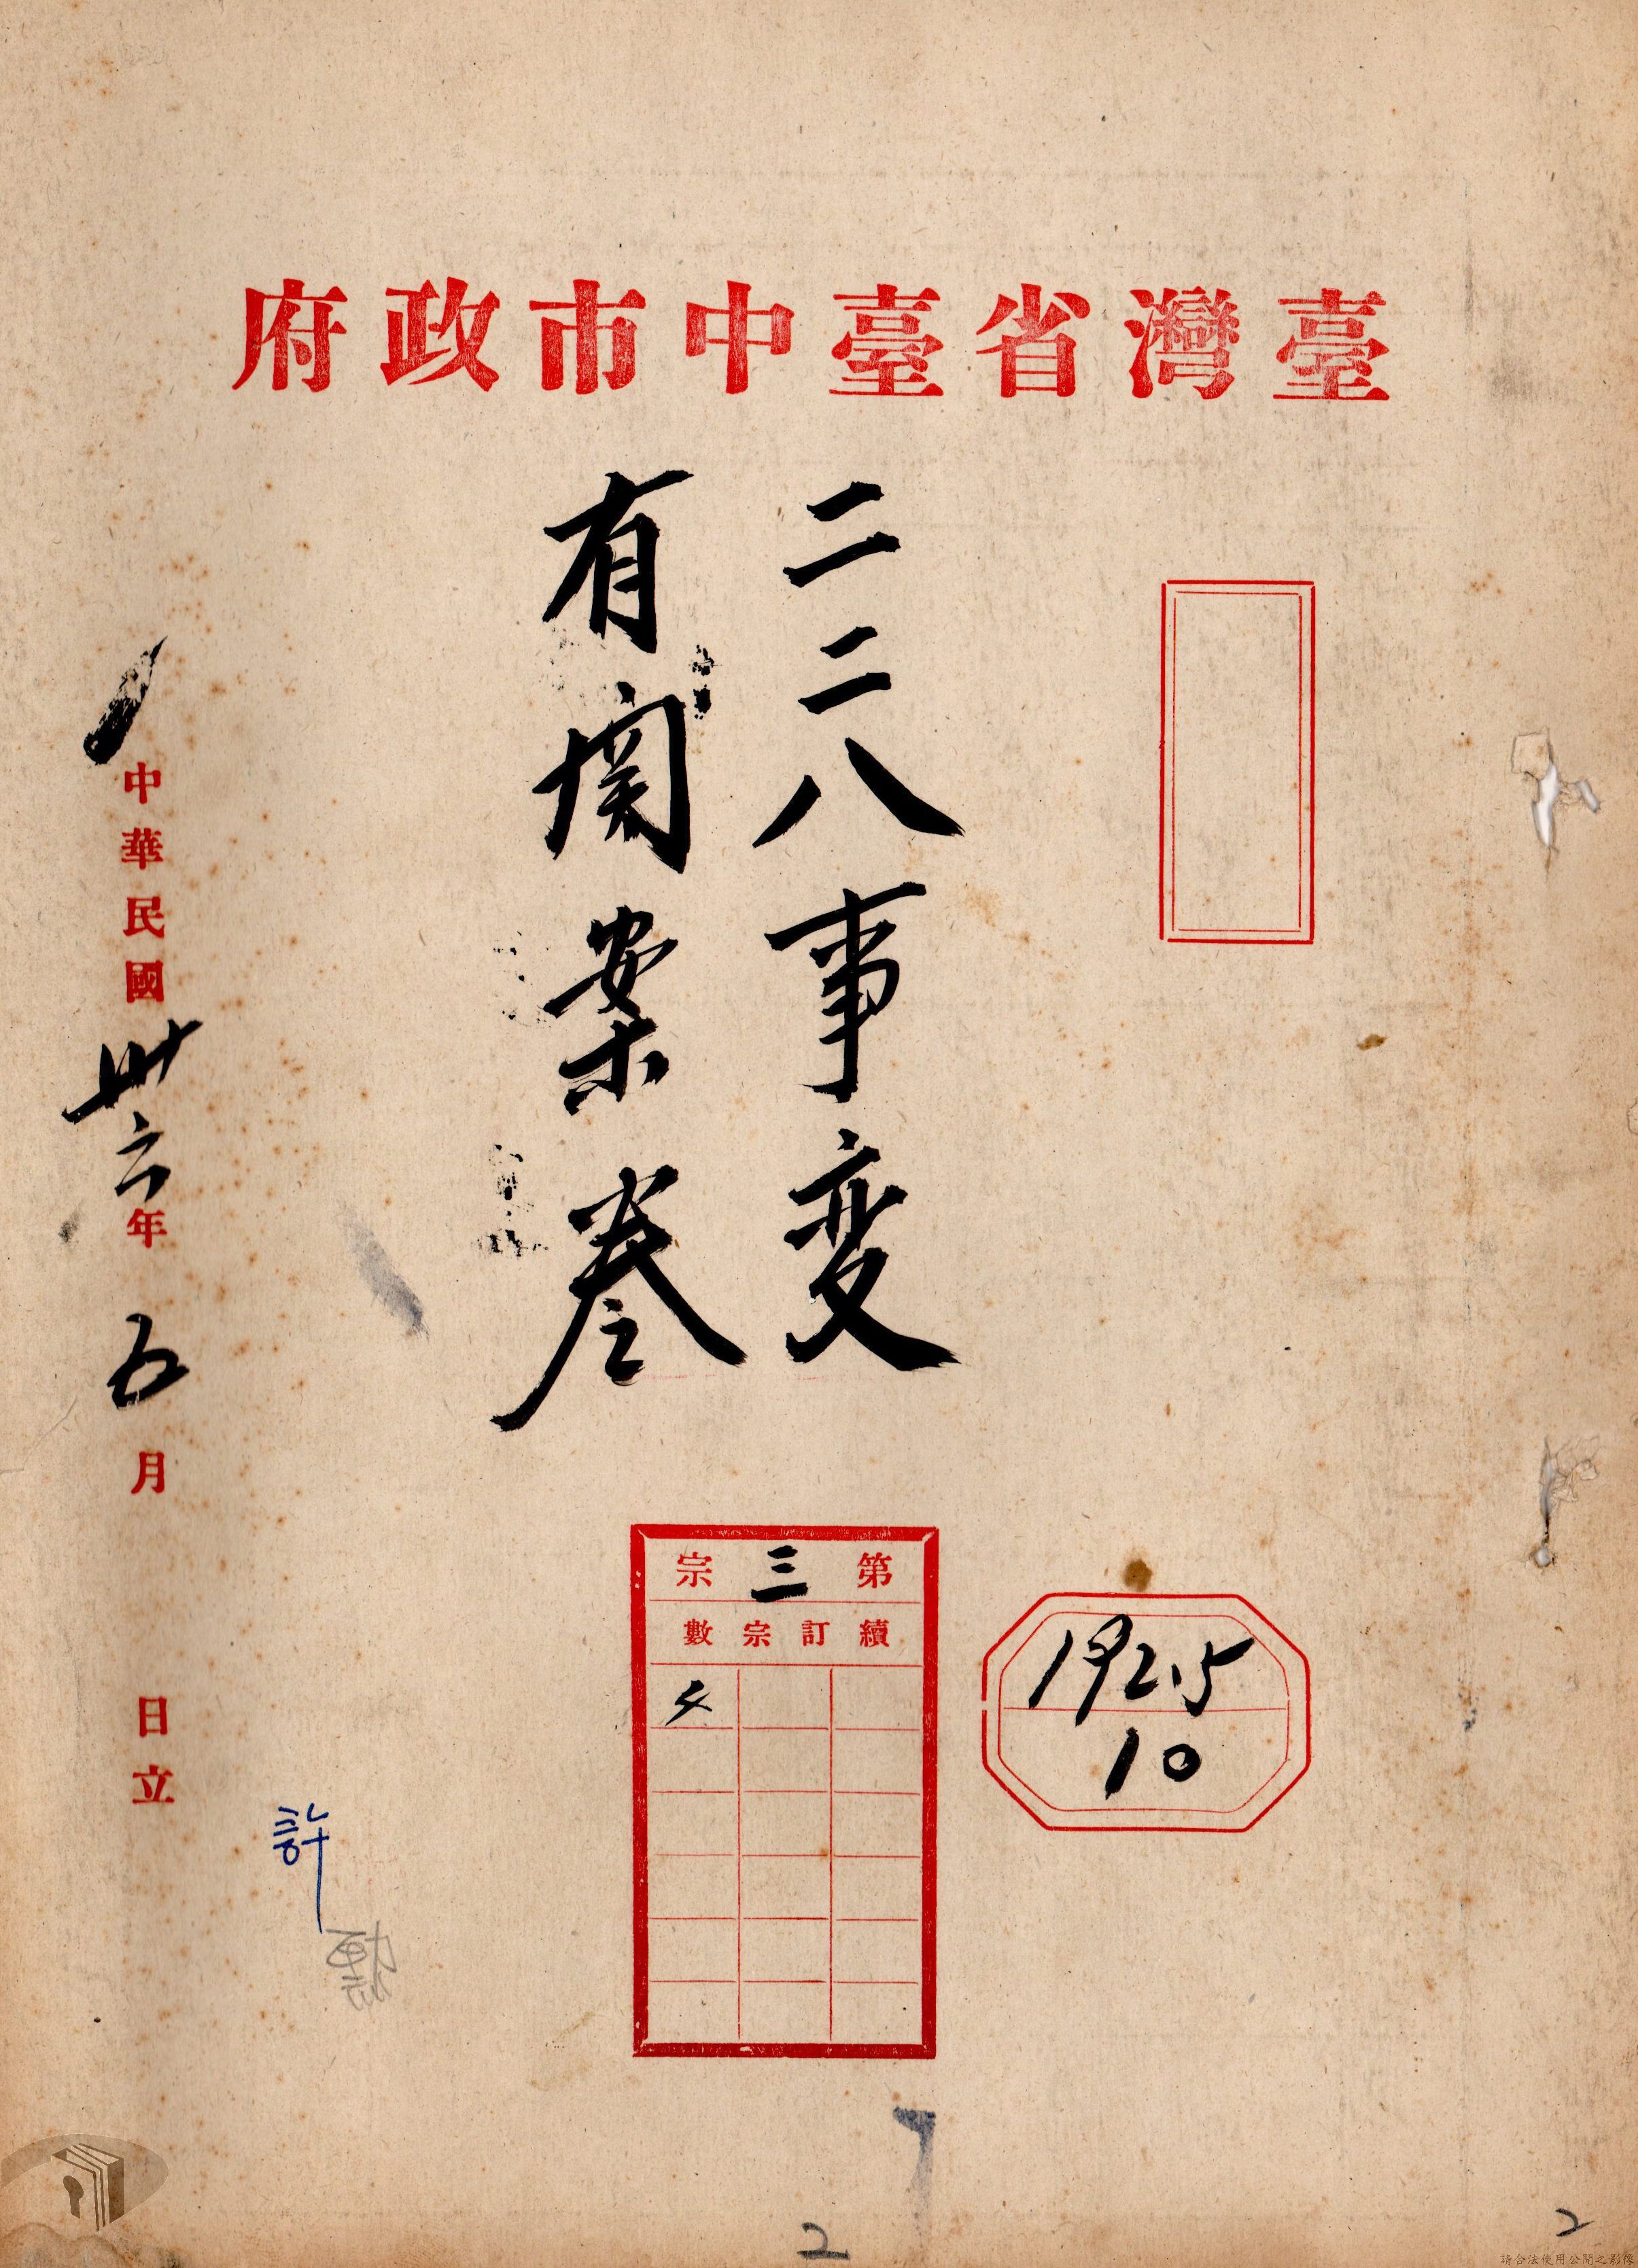 臺灣省臺中市政府
二二八事变
有関案卷
中華民國卅六年五月 日立
第三宗
續訂宗數
192.5
10
許
2
2
請合法使用公開之影像